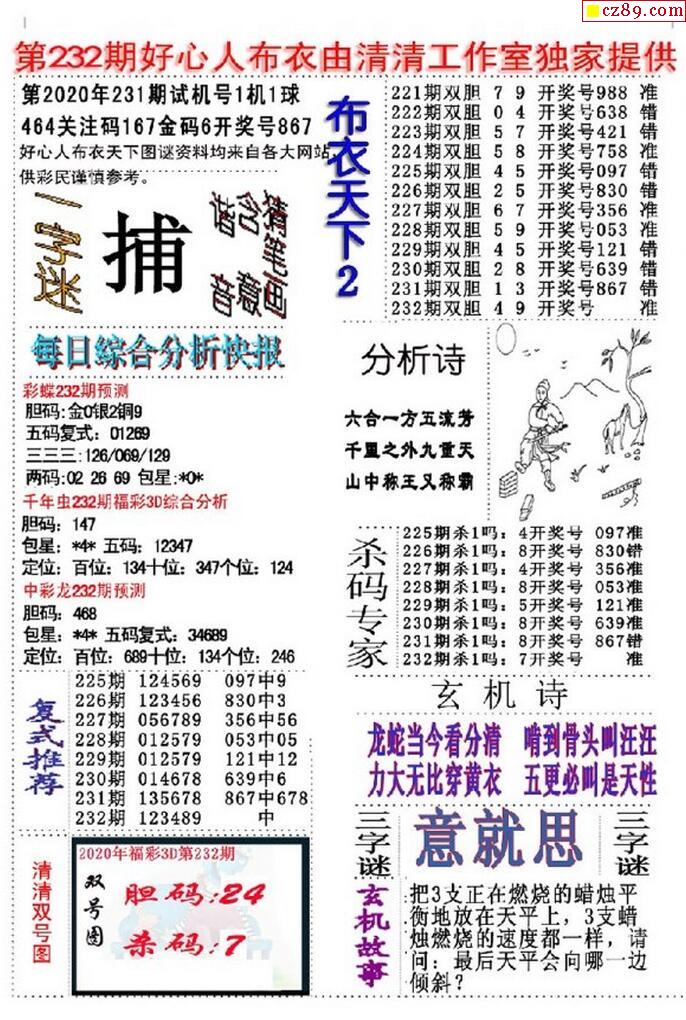 cz89.com
第232期好心人布衣由清清工作室独家提供
第2020年231期试机号1机1球
464关注码167金码6开奖号867
好心人布衣天下图谜资料均来自各大网站,
供彩民谨慎参考。
一字迷
捕
谐音
含意
猜笔画
布衣天下2
221期双胆 7 9 开奖号988 准
222期双胆 0 4 开奖号638 错
223期双胆 5 7 开奖号421 错
224期双胆 5 8 开奖号758 准
225期双胆 4 5 开奖号097 错
226期双胆 2 5 开奖号830 错
227期双胆 6 7 开奖号356 准
228期双胆 5 9 开奖号053 准
229期双胆 4 5 开奖号121 错
230期双胆 2 8 开奖号639 错
231期双胆 1 3 开奖号867 错
232期双胆 4 9 开奖号 准
每日綜合分析快报
彩蝶232期预测
胆码:金0银2铜9
五码复式: 01269
三三三: 126/069/129
两码:02 26 69 包星:*0*
千年虫232期福彩3D综合分析
胆码: 147
包星: *4* 五码: 12347
定位: 百位: 134十位: 347个位: 124
中彩龙232期预测
胆码: 468
包星: *4* 五码复式: 34689
定位: 百位: 689十位: 134个位: 246
分析诗
六合一方五流芳
千里之外九重天
山中称王又称霸
杀码专家
225期杀1吗: 4开奖号 097准
226期杀1吗: 8开奖号 830错
227期杀1吗: 4开奖号 356准
228期杀1吗: 8开奖号 053准
229期杀1吗: 5开奖号 121准
230期杀1吗: 8开奖号 639准
231期杀1吗: 8开奖号 867错
232期杀1吗: 7开奖号 准
复式推荐
225期 124569 097中9
226期 123456 830中3
227期 056789 356中56
228期 012579 053中05
229期 012579 121中12
230期 014678 639中6
231期 135678 867中678
232期 123489 中
玄机诗
龙蛇当今看分清 啃到骨头叫汪汪
力大无比穿黄衣 五更必叫是天性
三字谜
意就思
三字谜
清清双号图
2020年福彩3D第232期
双号图
胆码:24
杀码:7
玄机故事
把3支正在燃烧的蜡烛平
衡地放在天平上，3支蜡
烛燃烧的速度都一样，请
问：最后天平会向哪一边
倾斜？